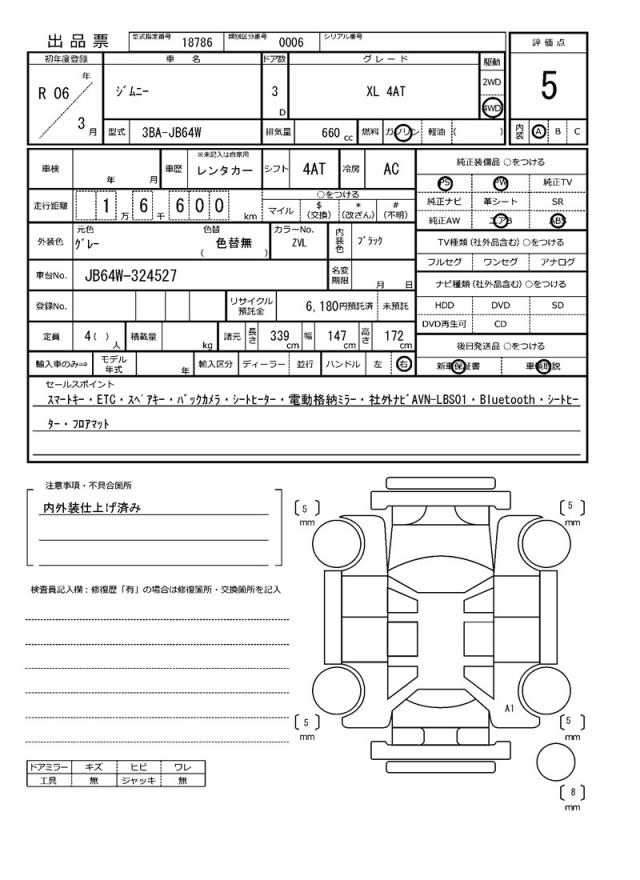 出品票 型式指定番号 18786 類別区分番号 0006 シリアル番号
評価点
初年度登録 車 名 ドア数 グレード 駆動
R 06 年 3 月
ジムニー 3 D XL 4AT 2WD 4WD
5
型式 3BA-JB64W 排気量 660 cc 燃料 ガソリン 軽油 ( )
内装 A B C
車検 年 月 車歴 ※未記入は自家用 レンタカー シフト 4AT 冷房 AC
走行距離 1 万 6 千 6 0 0 km
○をつける
マイル $ (交換) * (改ざん) # (不明)
外装色 元色 グレー 色替 ( 色替無 ) カラーNo. ZVL 内装色 ブラック
車台No. JB64W-324527 名変期限 月 日
登録No. リサイクル預託金 6,180円預託済 未預託
定員 4( ) 人 積載量 kg 諸元 長さ 339 cm 幅 147 cm 高さ 172 cm
輸入車のみ⇒ モデル年式 年 輸入区分 ディーラー 並行 ハンドル 左 右
純正装備品 ○をつける
PS PW 純正TV
純正ナビ 革シート SR
純正AW エアB ABS
TV種類(社外品含む)○をつける
フルセグ ワンセグ アナログ
ナビ種類(社外品含む)○をつける
HDD DVD SD
DVD再生可 CD
後日発送品 ○をつける
新車保証書 車輌取説
セールスポイント
スマートキー・ETC・スペアキー・バックカメラ・シートヒーター・電動格納ミラー・社外ナビAVN-LBS01・Bluetooth・シートヒー
ター・フロアマット
注意事項・不具合箇所
内外装仕上げ済み
検査員記入欄:修復歴「有」の場合は修復箇所・交換箇所を記入
ドアミラー キズ ヒビ ワレ
工具 無 ジャッキ 無
[ 5 ] mm
[ 5 ] mm
A1
[ 5 ] mm
[ 5 ] mm
[ 8 ] mm